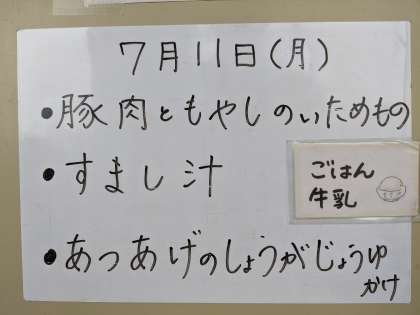 7月11日(月)
•豚肉ともやしのいためもの
•すまし汁
ごはん
牛乳
•あつあげのしょうがじょうゆ
かけ